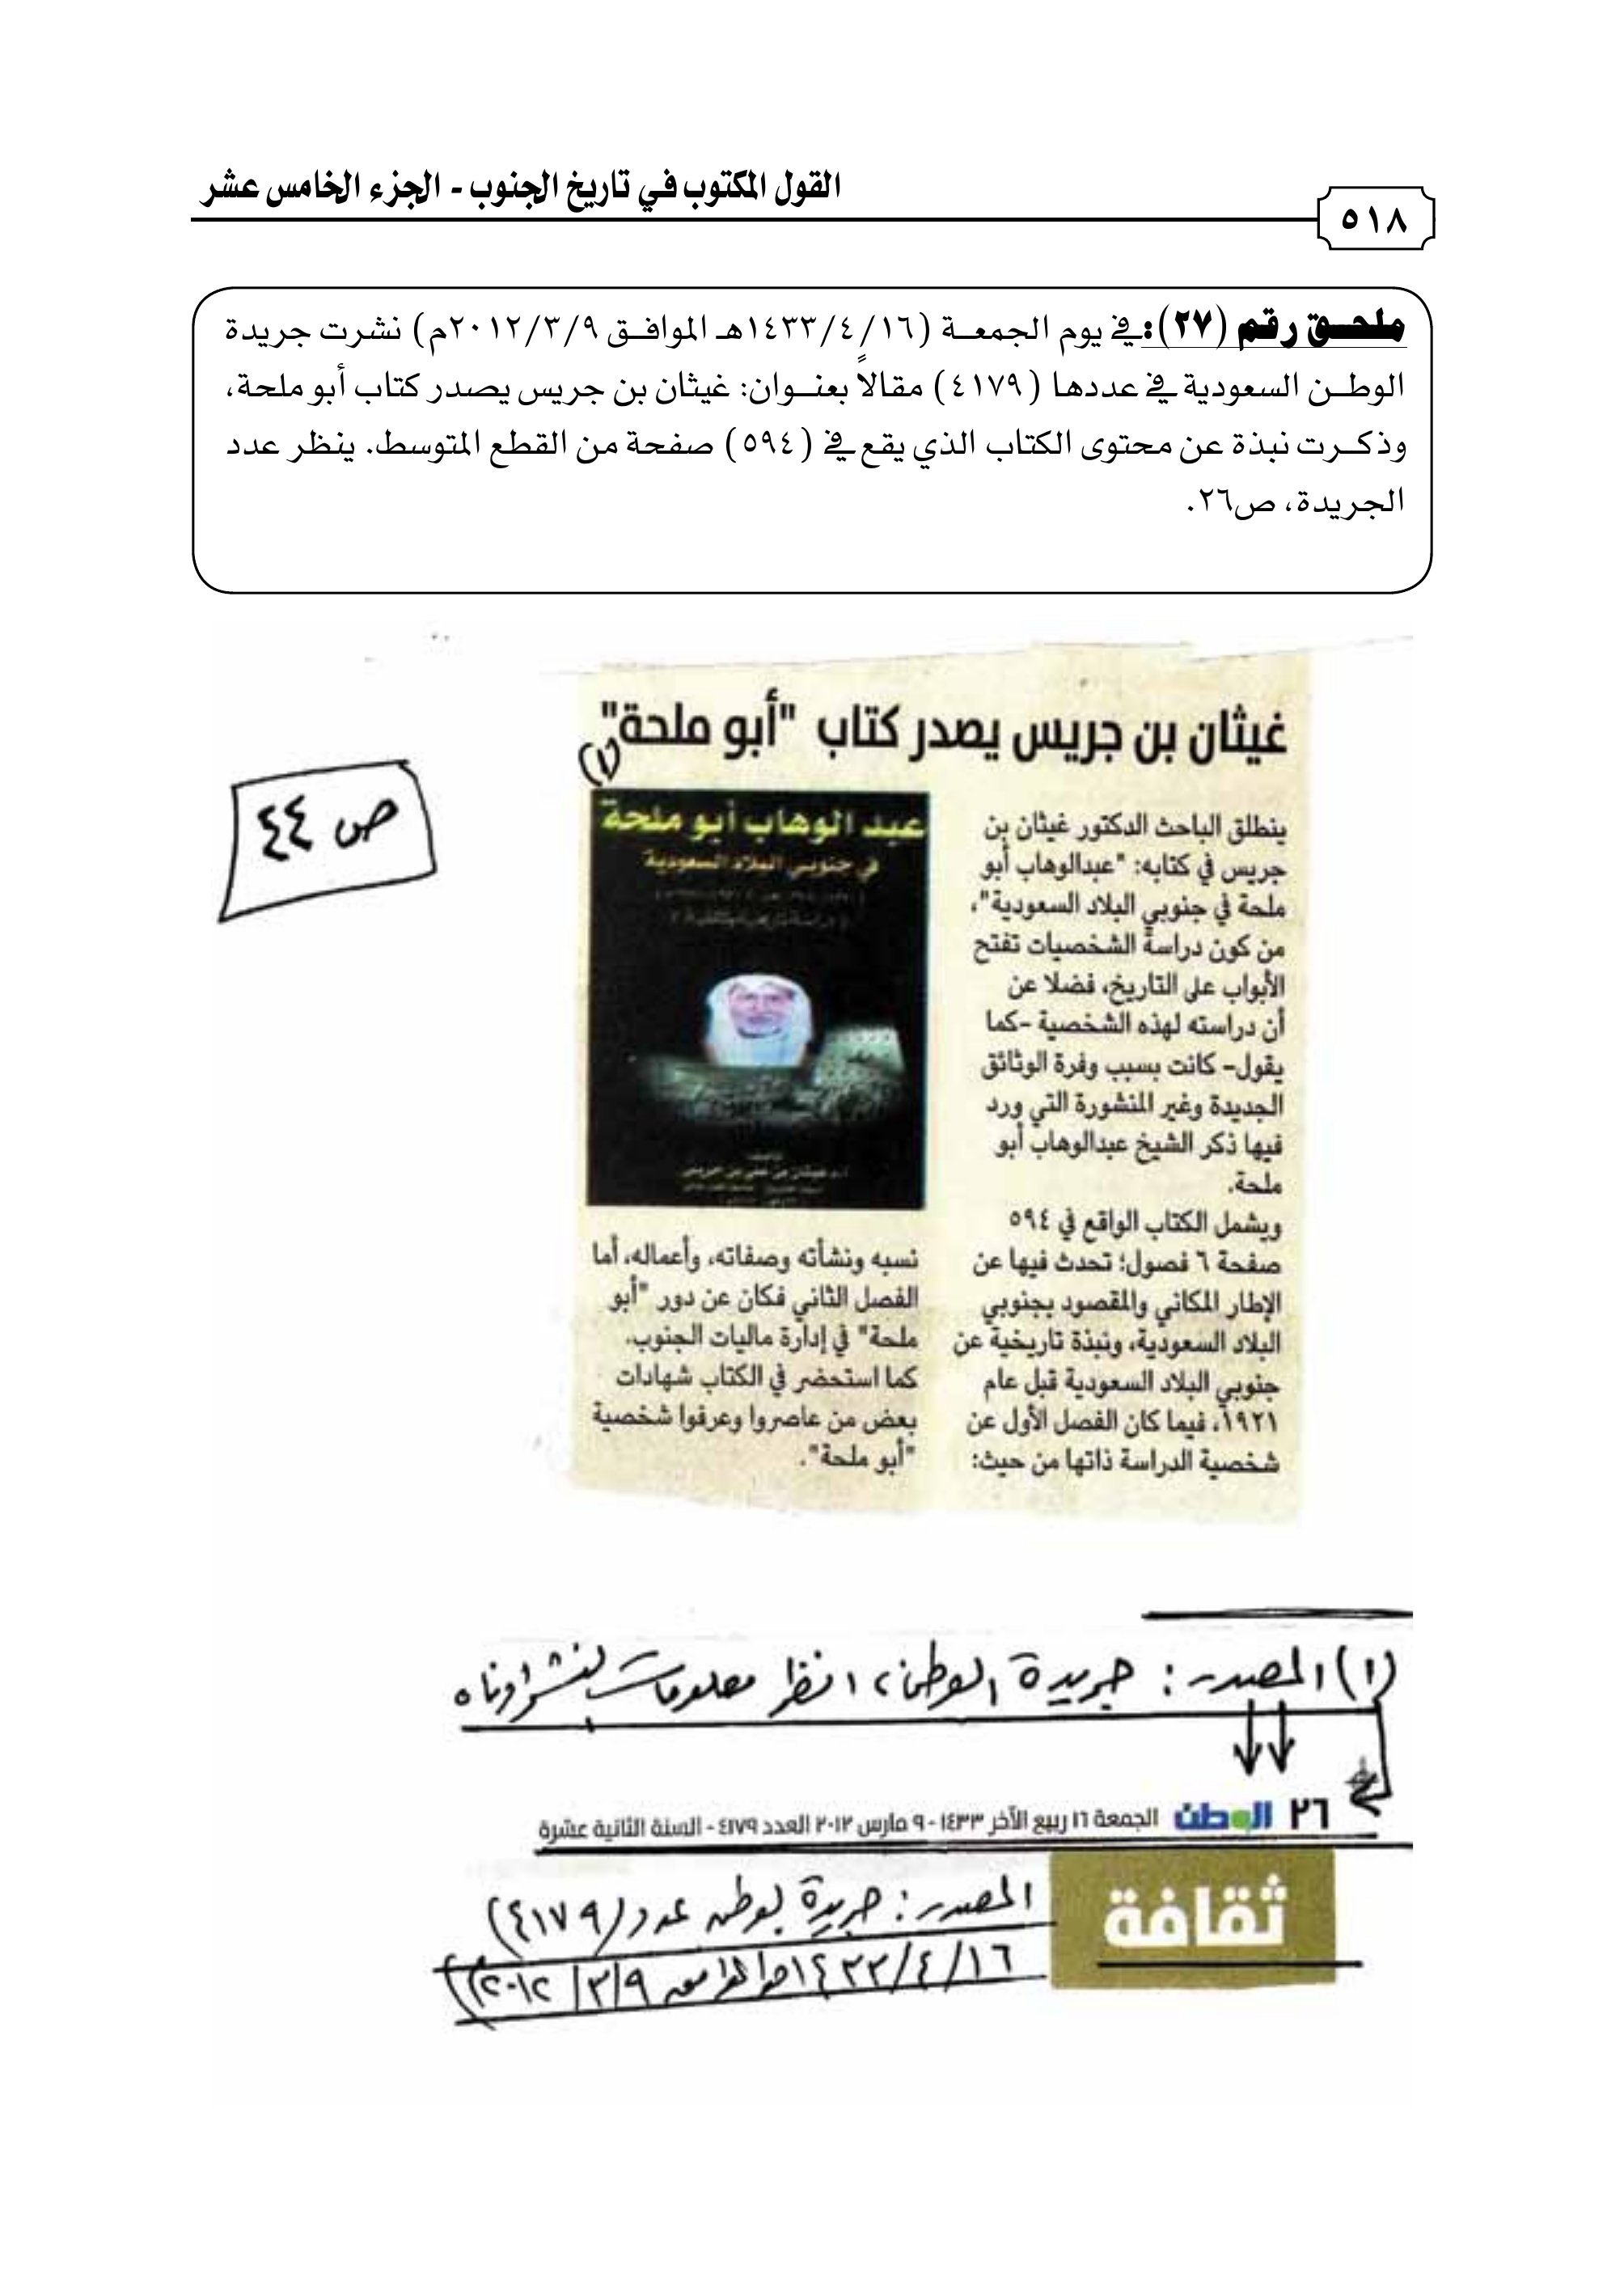 القول المكتوب في تاريخ الجنوب - الجزء الخامس عشر
٥١٨
ملحق رقم (٢٧): في يوم الجمعة (١٤٣٣/٤/١٦هـ الموافق ٢٠١٢/٣/٩م) نشرت جريدة
الوطن السعودية في عددها (٤١٧٩) مقالاً بعنوان: غيثان بن جريس يصدر كتاب أبو ملحة،
وذكرت نبذة عن محتوى الكتاب الذي يقع في (٥٩٤) صفحة من القطع المتوسط. ينظر عدد
الجريدة، ص٢٦.
غيثان بن جريس يصدر كتاب "أبو ملحة"
(١)
ص ٤٤
ينطلق الباحث الدكتور غيثان بن
جريس في كتابه: "عبدالوهاب أبو
ملحة في جنوبي البلاد السعودية"،
من كون دراسة الشخصيات تفتح
الأبواب على التاريخ، فضلا عن
أن دراسته لهذه الشخصية -كما
يقول- كانت بسبب وفرة الوثائق
الجديدة وغير المنشورة التي ورد
فيها ذكر الشيخ عبدالوهاب أبو
ملحة.
ويشمل الكتاب الواقع في ٥٩٤
صفحة ٦ فصول؛ تحدث فيها عن
الإطار المكاني والمقصود بجنوبي
البلاد السعودية، ونبذة تاريخية عن
جنوبي البلاد السعودية قبل عام
١٩٢١، فيما كان الفصل الأول عن
شخصية الدراسة ذاتها من حيث:
عبد الوهاب أبو ملحة
في جنوبي البلاد السعودية
نسبه ونشأته وصفاته، وأعماله، أما
الفصل الثاني فكان عن دور "أبو
ملحة" في إدارة ماليات الجنوب.
كما استحضر في الكتاب شهادات
بعض من عاصروا وعرفوا شخصية
"أبو ملحة".
(١) المصدر: جريدة الوطن، انظر معلومات النشر أدناه
٢٦ الوطن الجمعة ١٦ ربيع الآخر ١٤٣٣ - ٩ مارس ٢٠١٢ العدد ٤١٧٩ - السنة الثانية عشرة
ثقافة
المصدر: جريدة الوطن عدد (٤١٧٩)
١٤٣٣/٤/١٦هـ الموافق ٢٠١٢/٣/٩م)